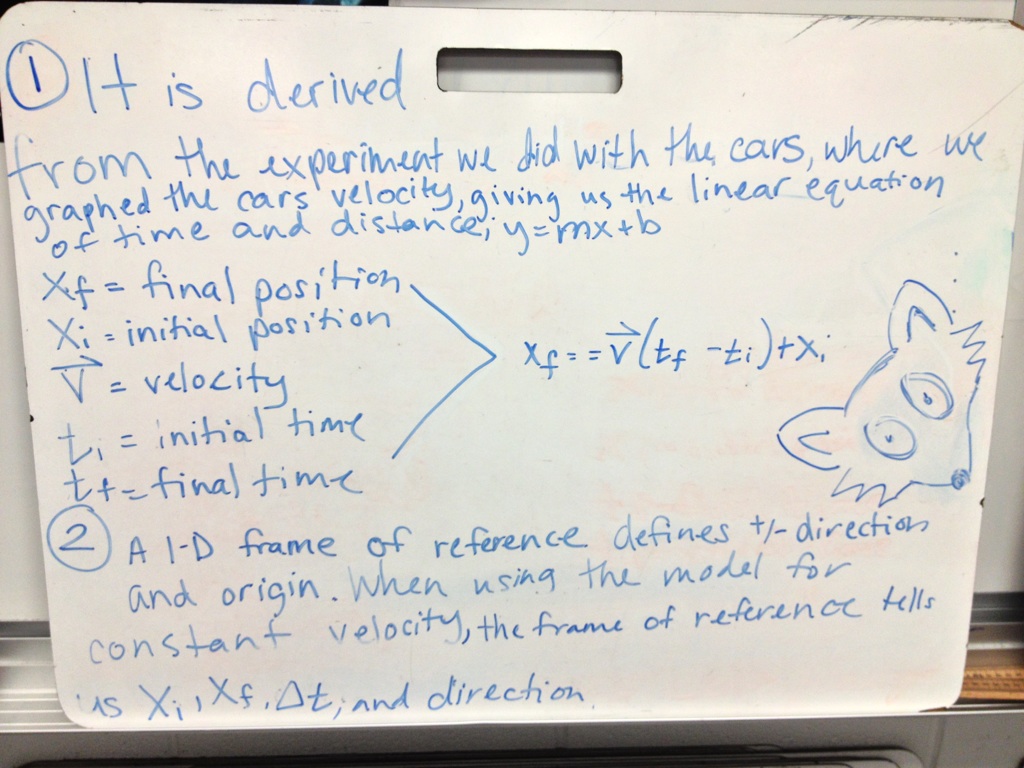 ① It is derived
from the experiment we did with the cars, where we
graphed the cars velocity, giving us the linear equation
of time and distance; y=mx+b
Xf = final position
Xi = initial position
V⃗ = velocity
ti = initial time
tf = final time
xf = = v⃗(tf - ti)+xi
② A 1-D frame of reference defines +/- direction
and origin. When using the model for
constant velocity, the frame of reference tells
us Xi, Xf, Δt, and direction.